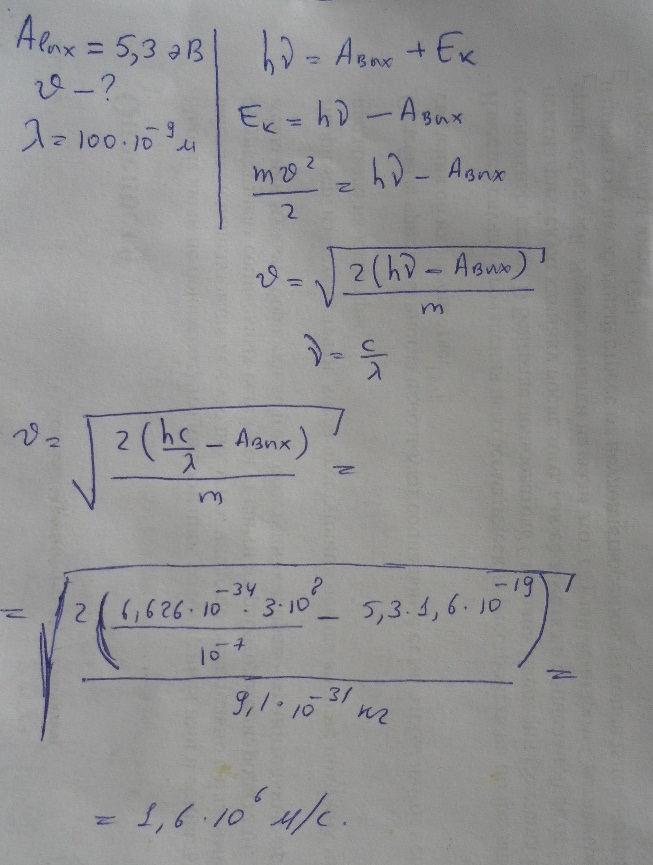 Aвпх = 5,3 эВ
υ - ?
λ = 100·10⁻⁹ м
hν = Aвпх + Eк
Eк = hν − Aвпх
mυ²/2 = hν − Aвпх
υ = √(2(hν − Aвпх)/m)
ν = c/λ
υ = √(2(hc/λ − Aвпх)/m) =
= √(2(6,626·10⁻³⁴·3·10⁸/10⁻⁷ − 5,3·1,6·10⁻¹⁹)/9,1·10⁻³¹ кг) =
= 1,6·10⁶ м/с.